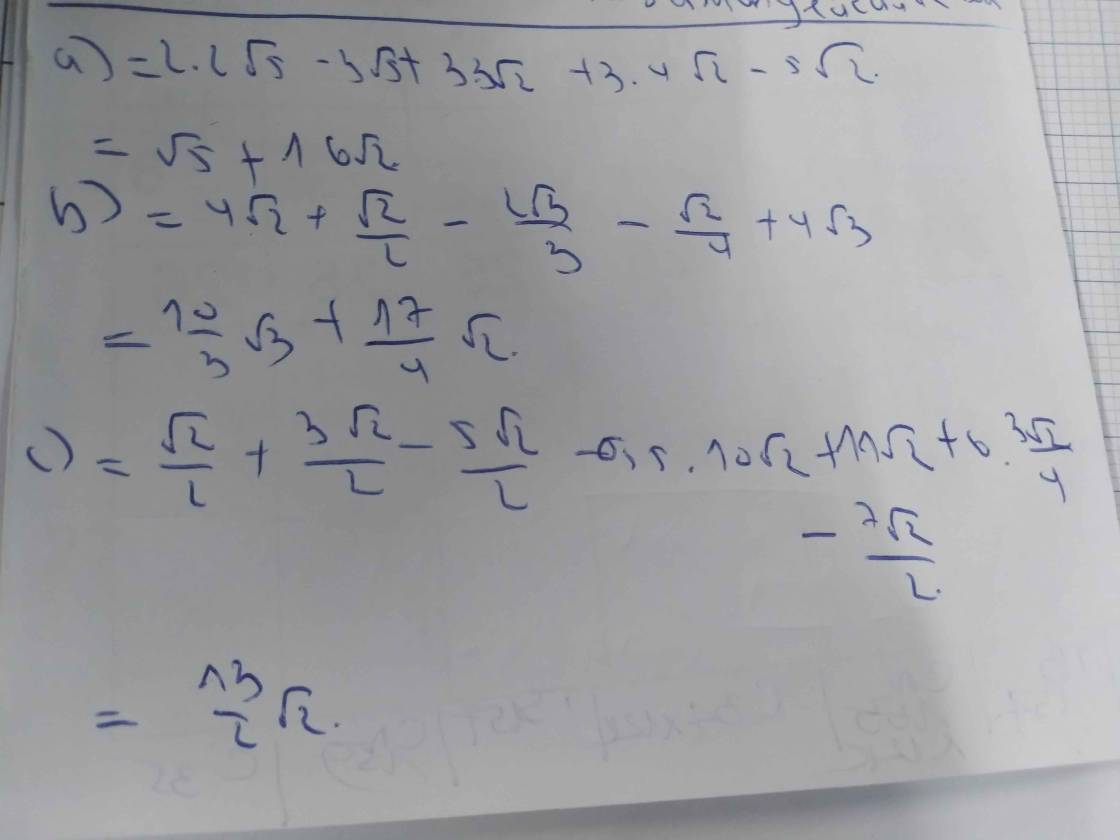 a) = 2.2√5 - 3√5 + 33√2 + 3.4√2 - 5√2.
= √5 + 16√2
b) = 4√2 + √2/2 - 2√3/3 - √2/4 + 4√3
= 10/3 √3 + 17/4 √2.
c) = √2/2 + 3√2/2 - 5√2/2 - 0,5.10√2 + 11√2 + 6.3√2/4
- 7√2/2.
= 13/2 √2.